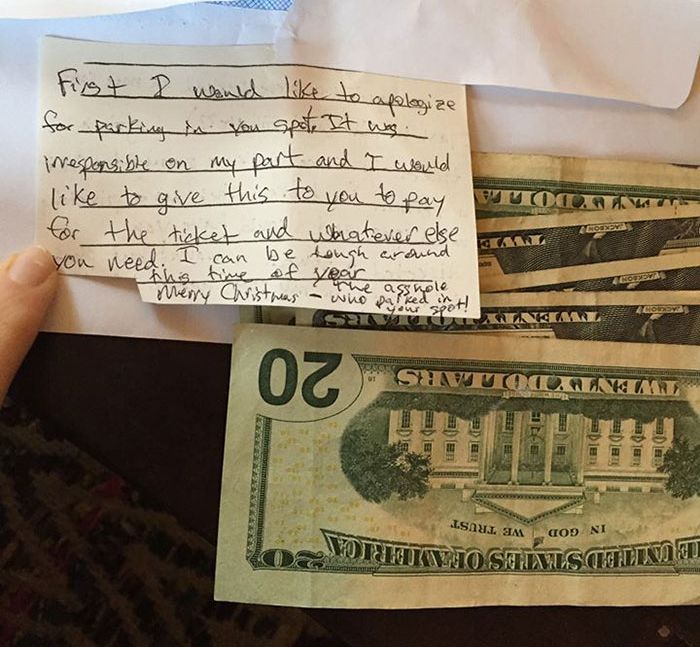 First I would like to apologize
for parking in you spot. It was
irresponsible on my part and I would
like to give this to you to pay
for the ticket and whatever else
you need. I can be tough around
this time of year
Merry Christmas – the asshole
who parked in
your spot!
JACKSON
JACKSON
JACKSON
20
TWENTY DOLLARS
IN GOD WE TRUST
THE UNITED STATES OF AMERICA
20